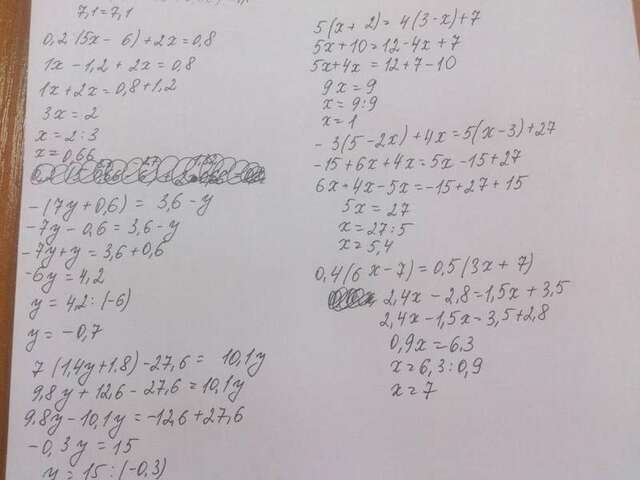 7,1=7,1
0,2(5x - 6) + 2x = 0,8
1x - 1,2 + 2x = 0,8
1x + 2x = 0,8 + 1,2
3x = 2
x = 2 : 3
x = 0,66
-(7y + 0,6) = 3,6 - y
-7y - 0,6 = 3,6 - y
-7y + y = 3,6 + 0,6
-6y = 4,2
y = 4,2 : (-6)
y = -0,7
7(1,4y + 1,8) - 27,6 = 10,1y
9,8y + 12,6 - 27,6 = 10,1y
9,8y - 10,1y = -12,6 + 27,6
-0,3y = 15
y = 15 : (-0,3)
5(x + 2) = 4(3 - x) + 7
5x + 10 = 12 - 4x + 7
5x + 4x = 12 + 7 - 10
9x = 9
x = 9 : 9
x = 1
-3(5 - 2x) + 4x = 5(x - 3) + 27
-15 + 6x + 4x = 5x - 15 + 27
6x + 4x - 5x = -15 + 27 + 15
5x = 27
x = 27 : 5
x = 5,4
0,4(6x - 7) = 0,5(3x + 7)
2,4x - 2,8 = 1,5x + 3,5
2,4x - 1,5x = 3,5 + 2,8
0,9x = 6,3
x = 6,3 : 0,9
x = 7